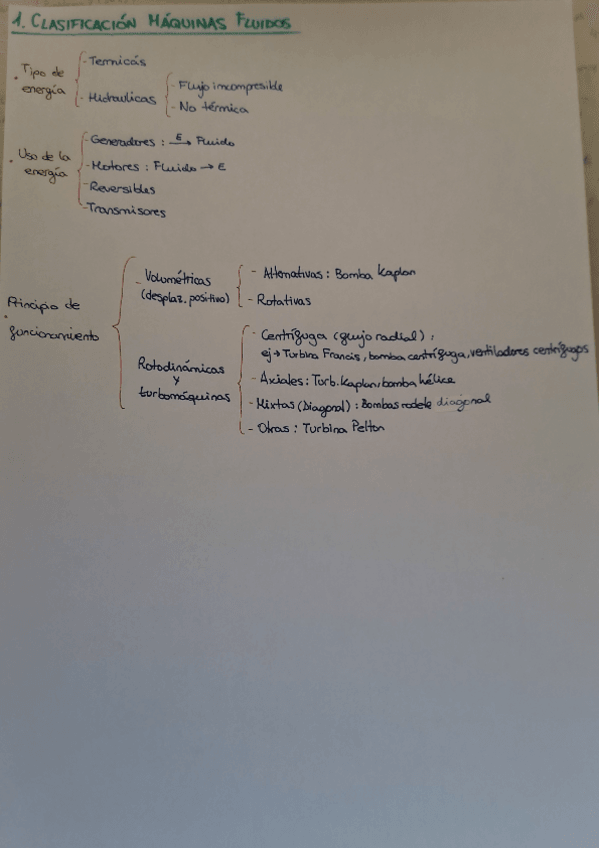 1. CLASIFICACIÓN MÁQUINAS FLUIDOS
· Tipo de energía
- Termicás
- Hidraulicas
- Flujo incompresible
- No térmica
· Uso de la energía
- Generadores : E → Fluido
- Motores : Fluido → E
- Reversibles
- Transmisores
Principio de funcionamiento
- Volumétricas
(desplaz. positivo)
- Alternativas : Bomba Kaplan
- Rotativas
Rotodinámicas
y
turbomáquinas
- Centrífuga (flujo radial) :
ej → Turbina Francis, bomba centrífuga, ventiladores centrífugos
- Axiales : Turb. Kaplan, bomba hélice
- Mixtas (Diagonal) : Bombas rodete diagonal
- Otras : Turbina Pelton